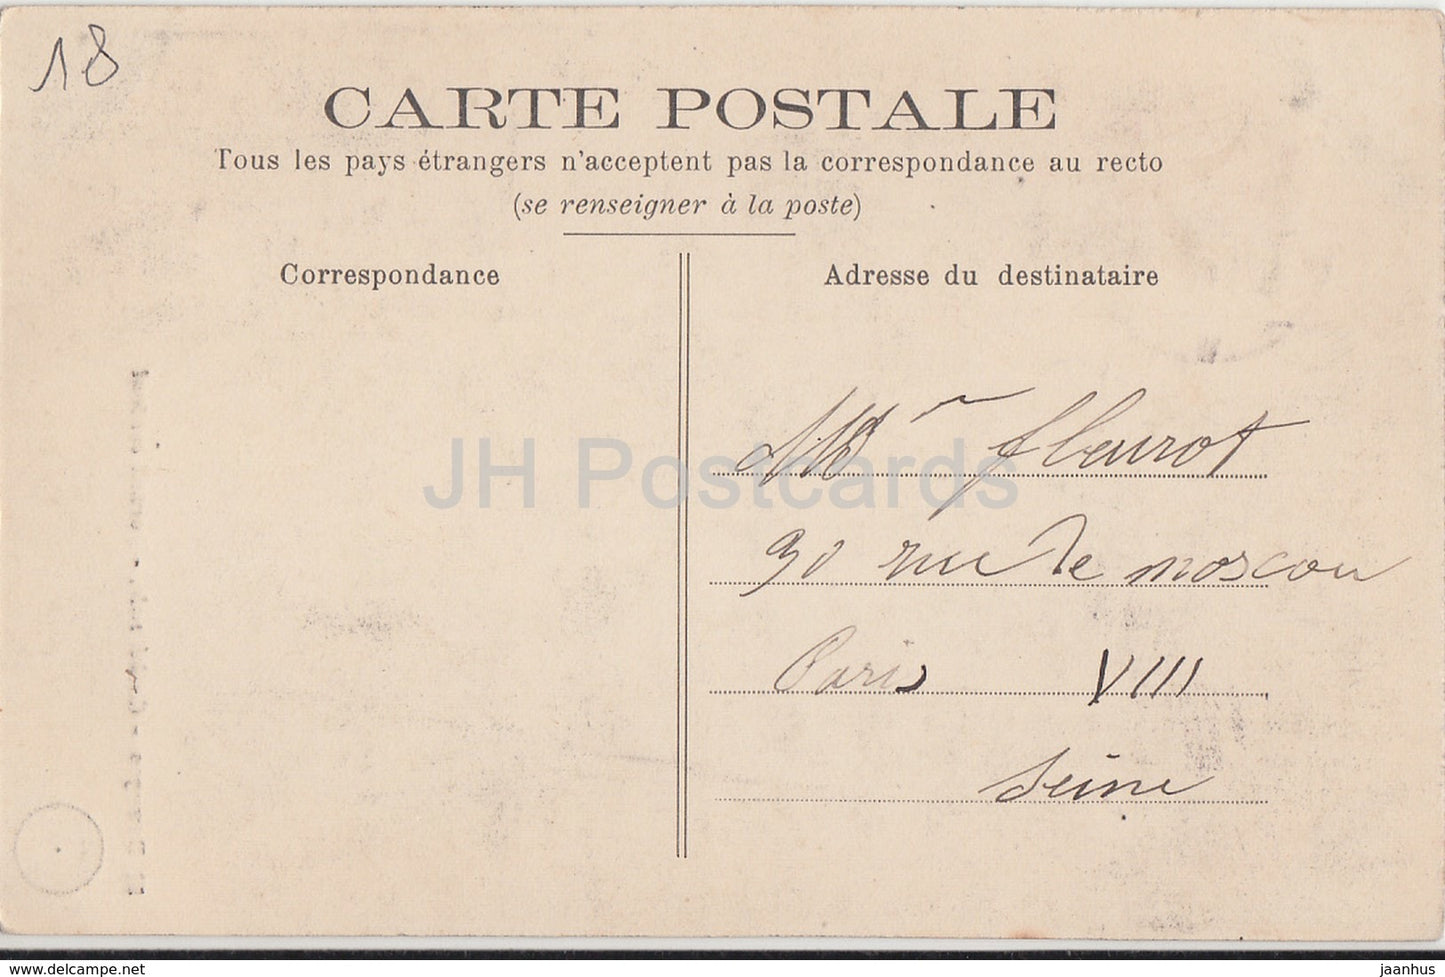 18
CARTE POSTALE
Tous les pays étrangers n'acceptent pas la correspondance au recto
(se renseigner à la poste)
Correspondance
Adresse du destinataire
JH Postcards
Mr fleurot
90 rue de moscou
Paris VIII
Seine
www.delcampe.net
jaanhus